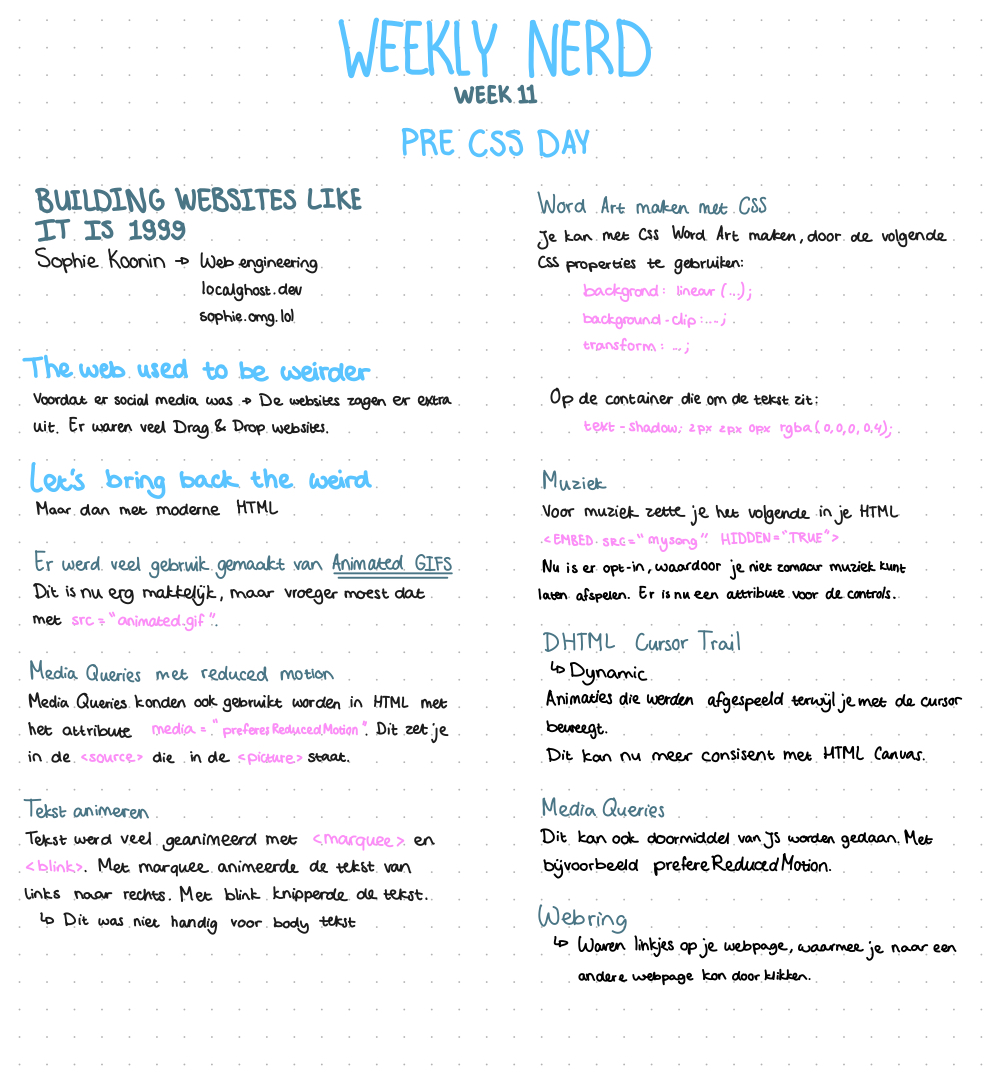 WEEKLY NERD
WEEK 11
PRE CSS DAY
BUILDING WEBSITES LIKE
IT IS 1999
Sophie Koonin → Web engineering
localghost.dev
sophie.omg.lol
The web used to be weirder
Voordat er social media was → De websites zagen er extra
uit. Er waren veel Drag & Drop websites.
Let's bring back the weird
Maar dan met moderne HTML
Er werd veel gebruik gemaakt van Animated GIFS
Dit is nu erg makkelijk, maar vroeger moest dat
met src = "animated.gif".
Media Queries met reduced motion
Media Queries konden ook gebruikt worden in HTML met
het attribute media = "preferesReducedMotion". Dit zet je
in de <source> die in de <picture> staat.
Tekst animeren
Tekst werd veel geanimeerd met <marquee> en
<blink>. Met marquee animeerde de tekst van
links naar rechts. Met blink knipperde de tekst.
↳ Dit was niet handig voor body tekst
Word Art maken met CSS
Je kan met CSS Word Art maken, door de volgende
CSS properties te gebruiken:
backgrond: linear (...);
background-clip: ...;
transform: ...;
Op de container die om de tekst zit:
tekt-shadow: 2px 2px 0px rgba(0,0,0,0.4);
Muziek
Voor muziek zette je het volgende in je HTML
<EMBED src="mysong" HIDDEN="TRUE">
Nu is er opt-in, waardoor je niet zomaar muziek kunt
laten afspelen. Er is nu een attribute voor de controls.
DHTML Cursor Trail
↳ Dynamic
Animaties die werden afgespeeld terwijl je met de cursor
beweegt.
Dit kan nu meer consisent met HTML Canvas.
Media Queries
Dit kan ook doormiddel van JS worden gedaan. Met
bijvoorbeeld prefereReducedMotion.
Webring
↳ Waren linkjes op je webpage, waarmee je naar een
andere webpage kon door klikken.